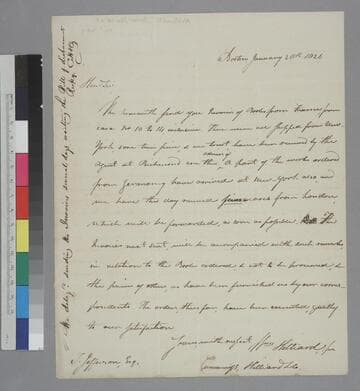 Boston January 28th. 1826
Dear Sir
We herewith send you Invoices of Books from France from
case No 10 to 14 inclusive. These were all shipped from New
York some time since & must have been received by the
agent at Richmond ere this, A part of the books ordered
from Germany have arrived at New York also and
we have this day received cases from London
which will be forwarded, as soon as possible, The
Invoices next sent will be accompanied with such remarks
in relation to the Books ordered & not to be procured, &
the prices of others as have been furnished us by our corres-
pondents The orders, thus far have been executed, greatly
to our satisfaction
Yours with respect
Wm Hilliard, for
Cummings, Hilliard & Co
T. Jefferson, Esq.
sending the Invoices several days waiting the Bill of